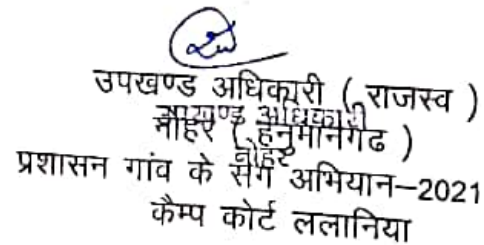 उपखण्ड अधिकारी ( राजस्व )
उपखण्ड अधिकारी
नोहर ( हनुमानगढ )
नोहर
प्रशासन गांव के संग अभियान–2021
कैम्प कोर्ट ललानिया